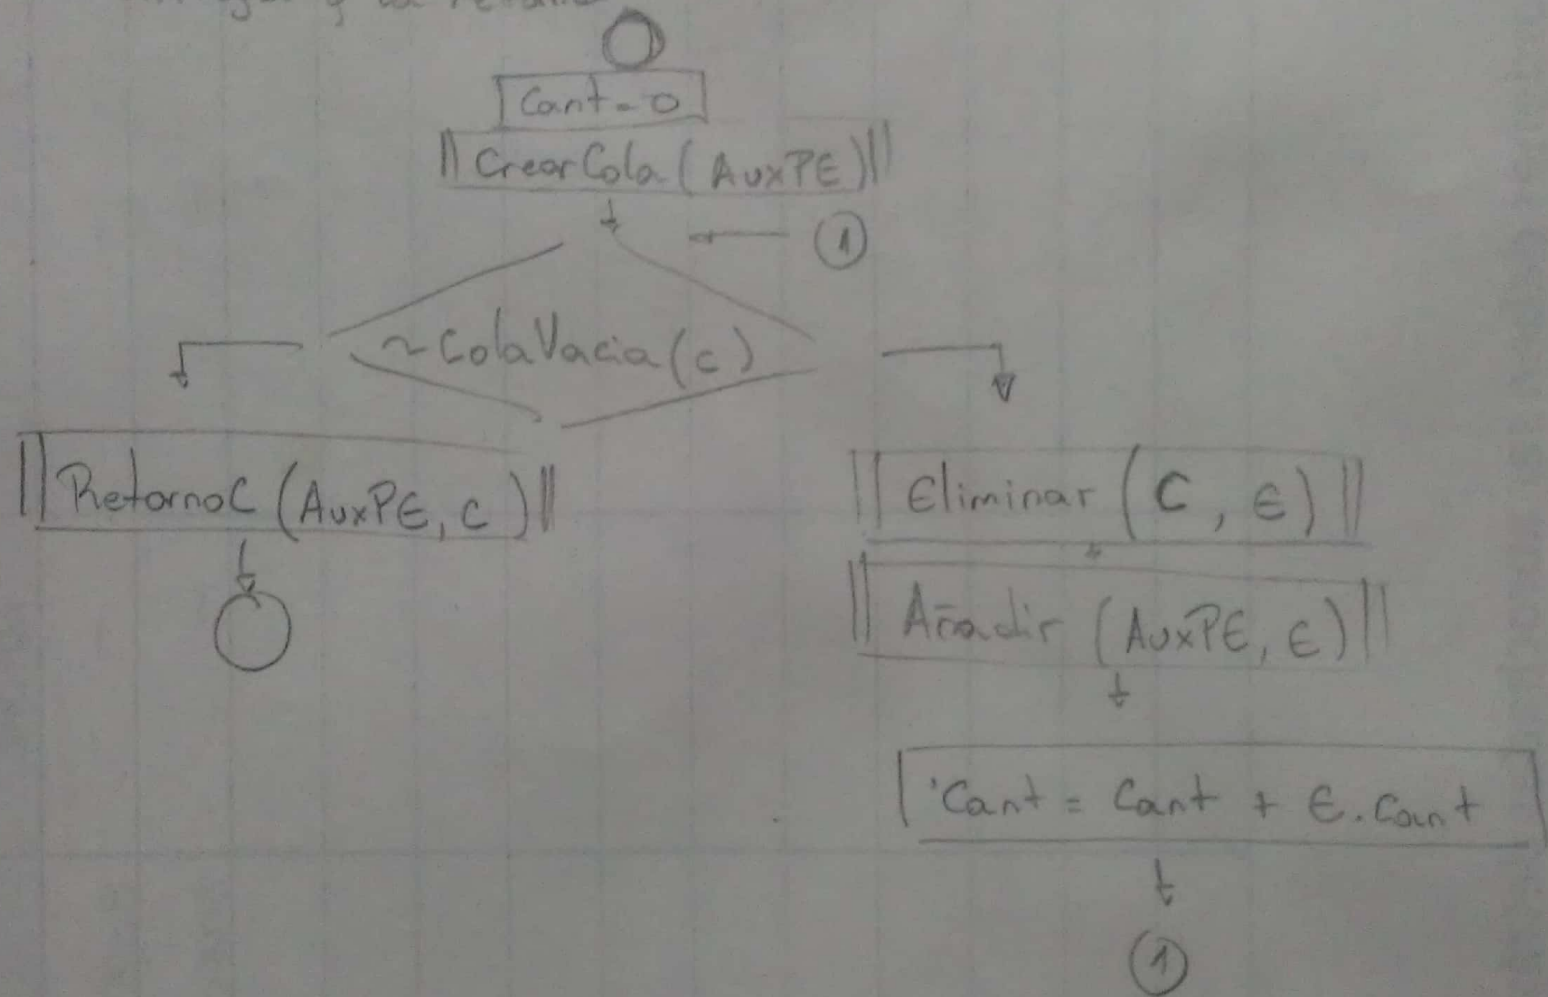 Cant = 0
CrearCola (AuxPE)
1
~ColaVacia (c)
RetornoC (AuxPE, c)
Eliminar (C, E)
Añadir (AuxPE, E)
Cant = Cant + E.Cant
1